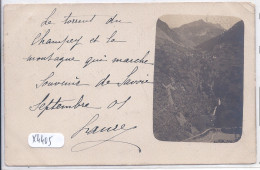 Le torrent du
Champey et la
montagne qui marche
Souvenir de Savoie
Septembre 01